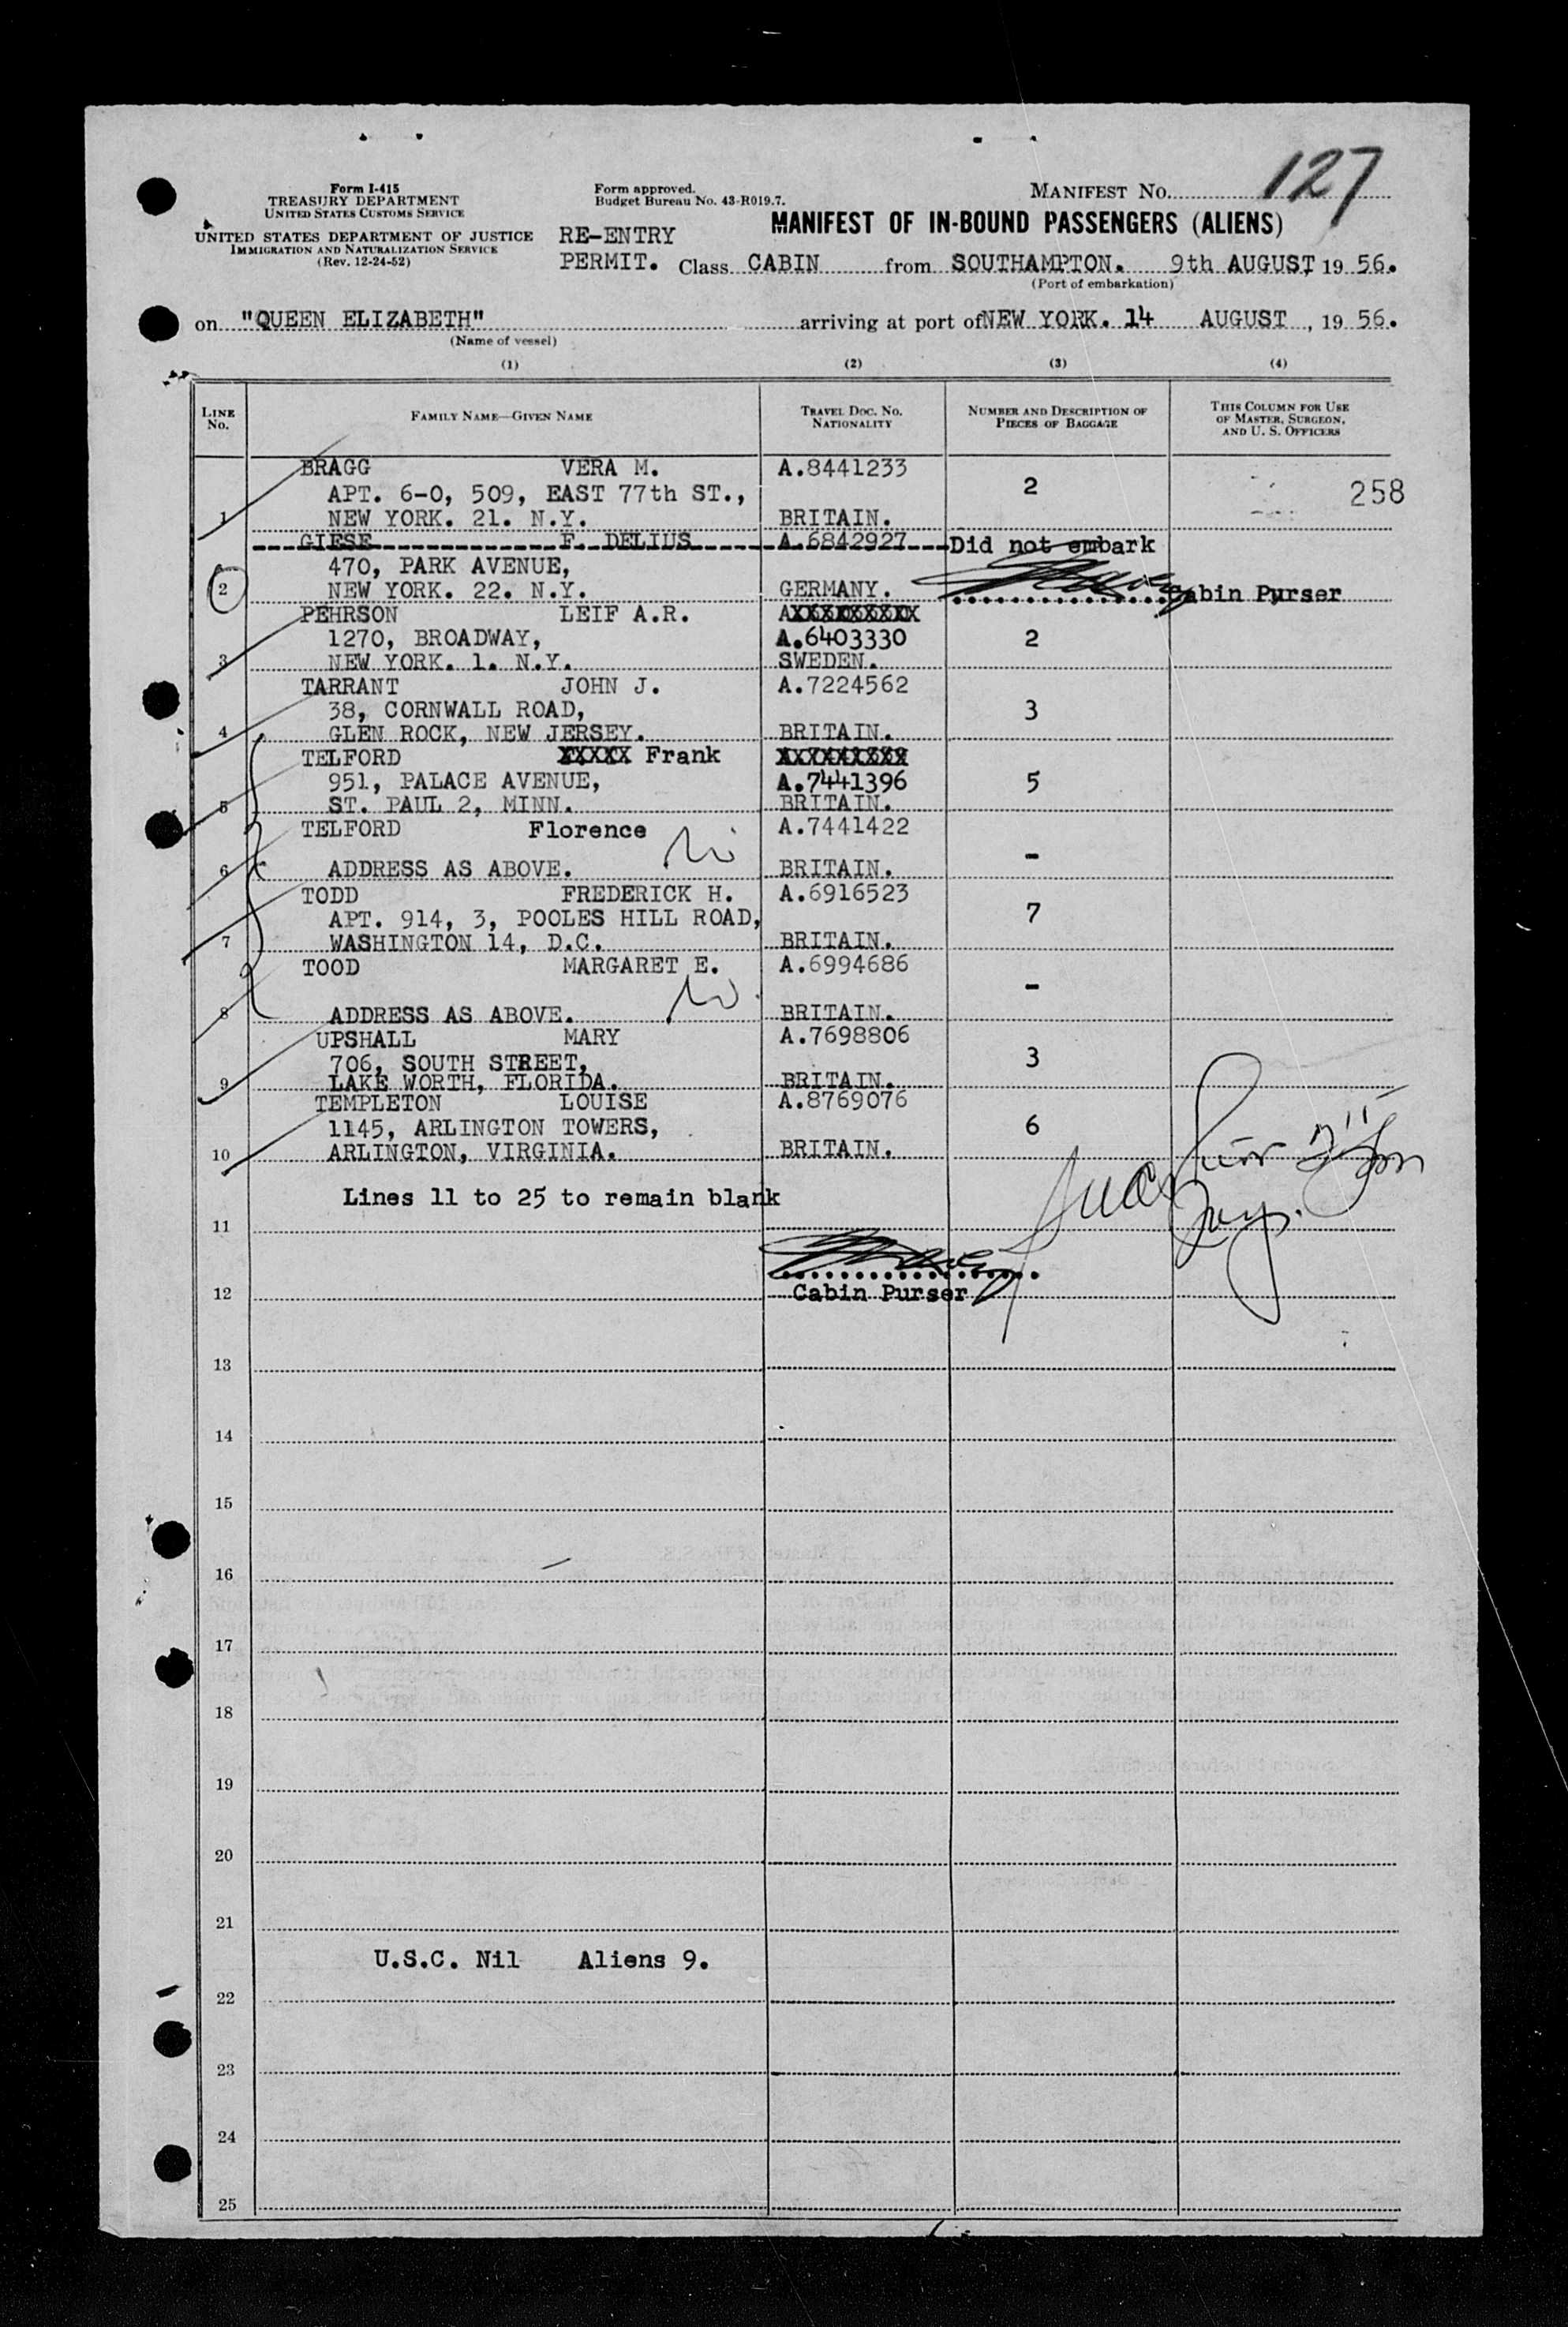 Form I-415
TREASURY DEPARTMENT
UNITED STATES CUSTOMS SERVICE
UNITED STATES DEPARTMENT OF JUSTICE
IMMIGRATION AND NATURALIZATION SERVICE
(Rev. 12-24-52)
Form approved.
Budget Bureau No. 43-R019.7.
MANIFEST NO. 127
MANIFEST OF IN-BOUND PASSENGERS (ALIENS)
RE-ENTRY
PERMIT. Class CABIN from SOUTHAMPTON. 9th AUGUST, 19 56.
(Port of embarkation)
on "QUEEN ELIZABETH" arriving at port of NEW YORK. 14 AUGUST, 19 56.
(Name of vessel)
(1) (2) (3) (4)
LINE No. FAMILY NAME—GIVEN NAME TRAVEL DOC. NO. NATIONALITY NUMBER AND DESCRIPTION OF PIECES OF BAGGAGE THIS COLUMN FOR USE OF MASTER, SURGEON, AND U. S. OFFICERS
BRAGG VERA M. A.8441233
APT. 6-O, 509, EAST 77th ST., 2 258
1 NEW YORK. 21. N.Y. BRITAIN.
GIESE F. DELIUS A.6842927 Did not embark
470, PARK AVENUE,
2 NEW YORK. 22. N.Y. GERMANY. Cabin Purser
PEHRSON LEIF A.R.
1270, BROADWAY, A.6403330 2
3 NEW YORK. 1. N.Y. SWEDEN.
TARRANT JOHN J. A.7224562
38, CORNWALL ROAD, 3
4 GLEN ROCK, NEW JERSEY. BRITAIN.
TELFORD XXXXX Frank
951, PALACE AVENUE, A.7441396 5
5 ST. PAUL 2, MINN. BRITAIN.
TELFORD Florence A.7441422
-
6 ADDRESS AS ABOVE. BRITAIN.
TODD FREDERICK H. A.6916523
APT. 914, 3, POOLES HILL ROAD, 7
7 WASHINGTON 14, D.C. BRITAIN.
TOOD MARGARET E. A.6994686
-
8 ADDRESS AS ABOVE. BRITAIN.
UPSHALL MARY A.7698806
706, SOUTH STREET, 3
9 LAKE WORTH, FLORIDA. BRITAIN.
TEMPLETON LOUISE A.8769076
1145, ARLINGTON TOWERS, 6
10 ARLINGTON, VIRGINIA. BRITAIN.
Lines 11 to 25 to remain blank
11
12 Cabin Purser
13
14
15
16
17
18
19
20
21
U.S.C. Nil Aliens 9.
22
23
24
25